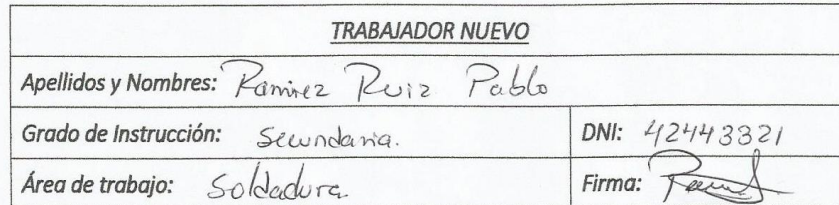 TRABAJADOR NUEVO
Apellidos y Nombres: Ramirez Ruiz Pablo
Grado de Instrucción: Secundaria.
DNI: 42443321
Área de trabajo: Soldadura
Firma: